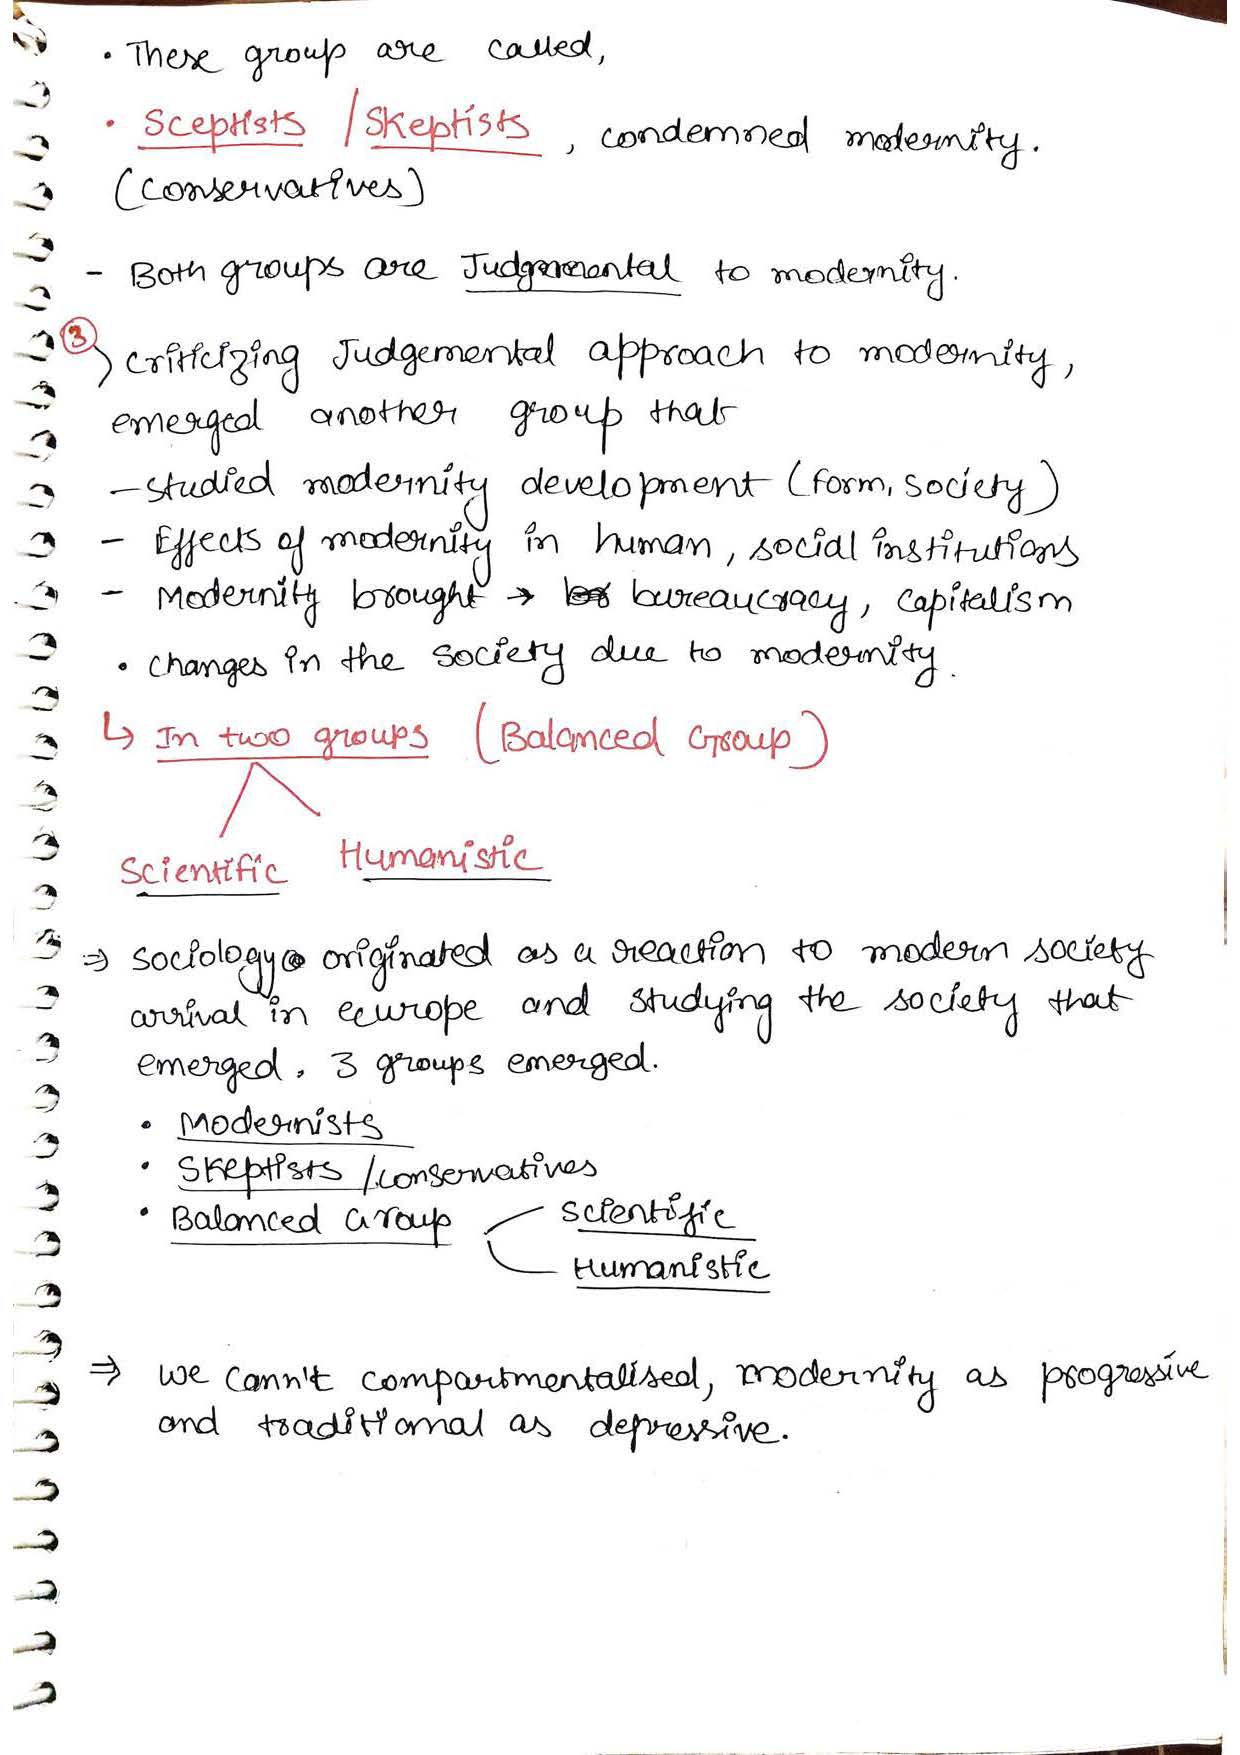 • These group are called,
• Sceptists / Skeptists, condemned modernity.
(Conservatives)
- Both groups are Judgemental to modernity.
③ Criticizing Judgemental approach to modernity,
emerged another group that
- studied modernity development (form, society)
- Effects of modernity in human, social institutions
- Modernity brought → bureaucracy, capitalism
• changes in the society due to modernity.
↳ In two groups (Balanced Group)
Scientific Humanistic
⇒ Sociology originated as a reaction to modern society
arrival in eeurope and studying the society that
emerged. 3 groups emerged.
• Modernists
• Skeptists / conservatives
• Balanced Group
Scientific
Humanistic
⇒ we cann't compartmentalised, modernity as progressive
and traditional as depressive.